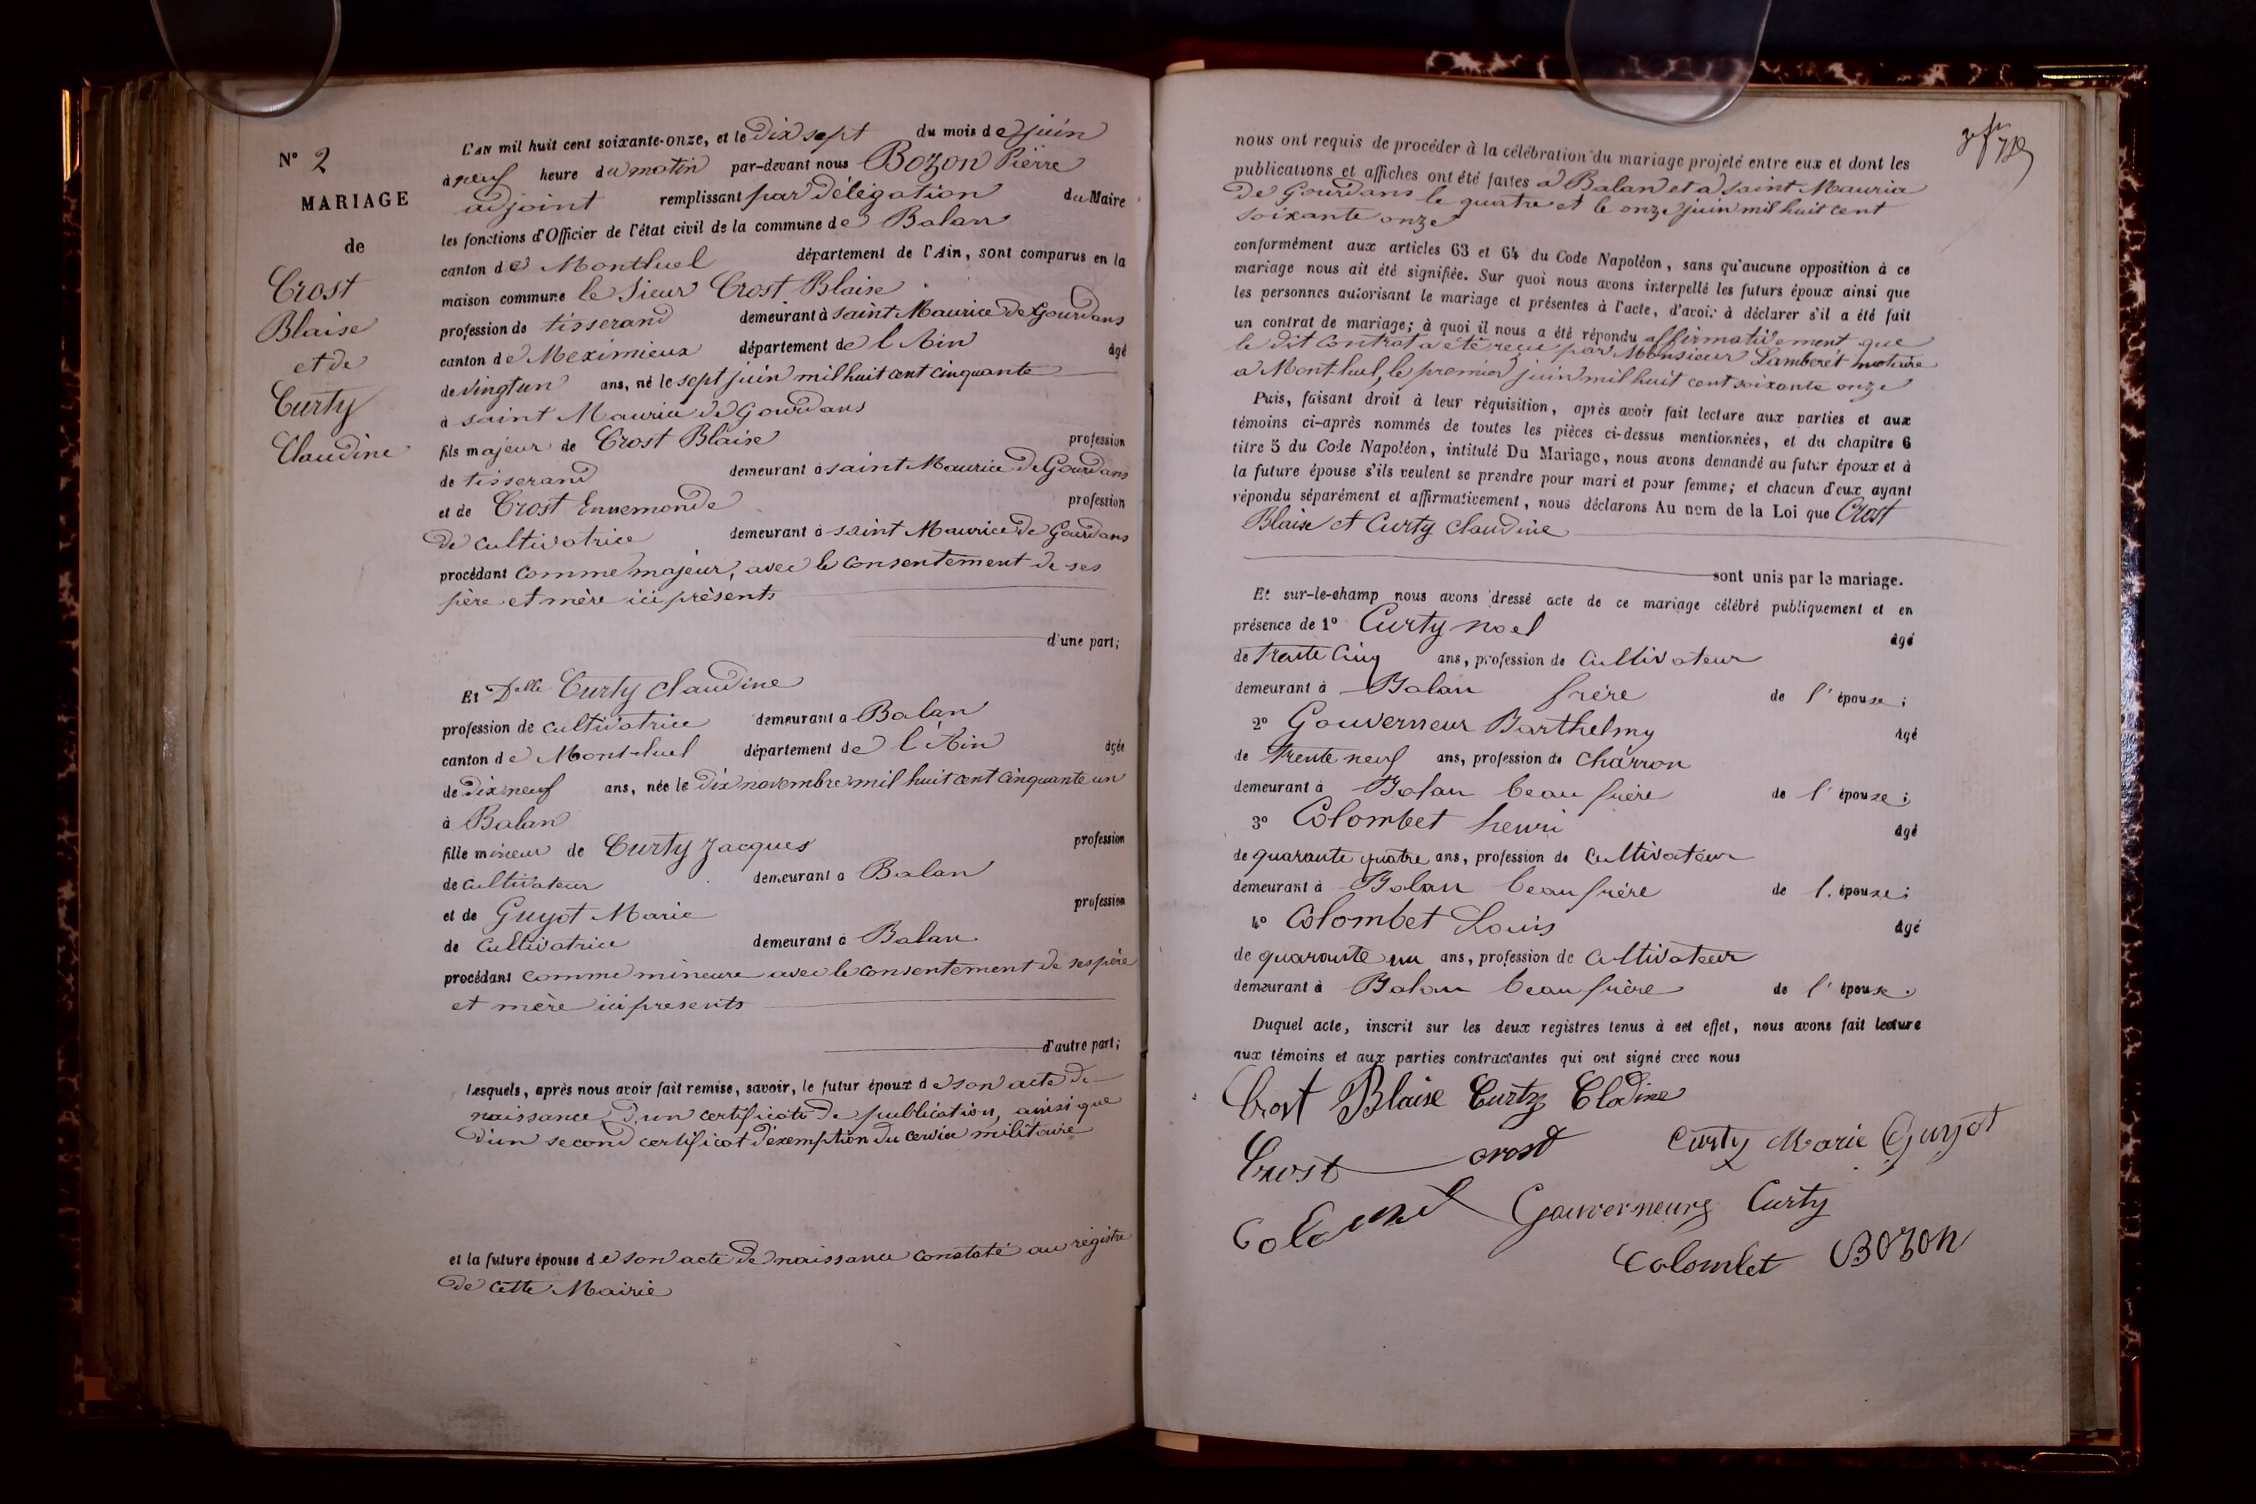 N° 2
MARIAGE
de
Crost
Blaise
et de
Curty
Claudine
L'AN mil huit cent soixante-onze, et le dix sept du mois de juin
à neuf heure du matin par-devant nous Bozon Pierre
adjoint remplissant par délégation du Maire
les fonctions d'Officier de l'état civil de la commune de Balan
canton de Montluel département de l'Ain, sont comparus en la
maison commune le Sieur Crost Blaise
profession de tisserand demeurant à saint Maurice de Gourdans
canton de Meximieux département de l'Ain âgé
de vingt un ans, né le sept juin mil huit cent cinquante
à saint Maurice de Gourdans
fils majeur de Crost Blaise profession
de tisserand demeurant à saint Maurice de Gourdans
et de Crost Ennemonde profession
de cultivatrice demeurant à saint Maurice de Gourdans
procédant comme majeur, avec le consentement de ses
père et mère ici présents
d'une part;
Et Delle Curty Claudine
profession de cultivatrice demeurant à Balan
canton de Mont-luel département de l'Ain âgée
de dix neuf ans, née le dix novembre mil huit cent cinquante un
à Balan
fille mineur de Curty Jacques profession
de cultivateur demeurant à Balan
et de Guyot Marie profession
de cultivatrice demeurant à Balan
procédant comme mineure avec le consentement de ses père
et mère ici presents
d'autre part;
Lesquels, après nous avoir fait remise, savoir, le futur époux de son acte de
naissance, d'un certificat de publication, ainsi que
d'un second certificat d'exemption du cervice militaire
et la future épouse de son acte de naissance constaté au registre
de cette Mairie
nous ont requis de procéder à la célébration du mariage projeté entre eux et dont les
publications et affiches ont été faites à Balan et à saint Maurice
de Gourdans le quatre et le onze juin mil huit cent
soixante onze
conformément aux articles 63 et 64 du Code Napoléon, sans qu'aucune opposition à ce
mariage nous ait été signifiée. Sur quoi nous avons interpellé les futurs époux ainsi que
les personnes autorisant le mariage et présentes à l'acte, d'avoir à déclarer s'il a été fait
un contrat de mariage; à quoi il nous a été répondu affirmativement que
le dit contrat a été reçu par Monsieur Lamberet notaire
a Mont-luel, le premier juin mil huit cent soixante onze
Puis, faisant droit à leur réquisition, après avoir fait lecture aux parties et aux
témoins ci-après nommés de toutes les pièces ci-dessus mentionnées, et du chapitre 6
titre 5 du Code Napoléon, intitulé Du Mariage, nous avons demandé au futur époux et à
la future épouse s'ils veulent se prendre pour mari et pour femme; et chacun d'eux ayant
répondu séparément et affirmativement, nous déclarons Au nom de la Loi que Crost
Blaise et Curty Claudine
sont unis par le mariage.
Et sur-le-champ nous avons dressé acte de ce mariage célébré publiquement et en
présence de 1° Curty Noel âgé
de trente cinq ans, profession de cultivateur
demeurant à Balan frère de l'épouse;
2° Gouverneur Barthelmy âgé
de trente neuf ans, profession de charron
demeurant à Balan beau frère de l'épouse;
3° Colombet henri âgé
de quarante quatre ans, profession de cultivateur
demeurant à Balan beau frère de l'épouse;
4° Colombet Louis âgé
de quarante un ans, profession de cultivateur
demeurant à Balan beau frère de l'épouse.
Duquel acte, inscrit sur les deux registres tenus à cet effet, nous avons fait lecture
aux témoins et aux parties contractantes qui ont signé avec nous
Crost Blaise Curty Cladine
Crost crost Curty Marie Guyot
Gouverneurg Curty
Colombet Bozon